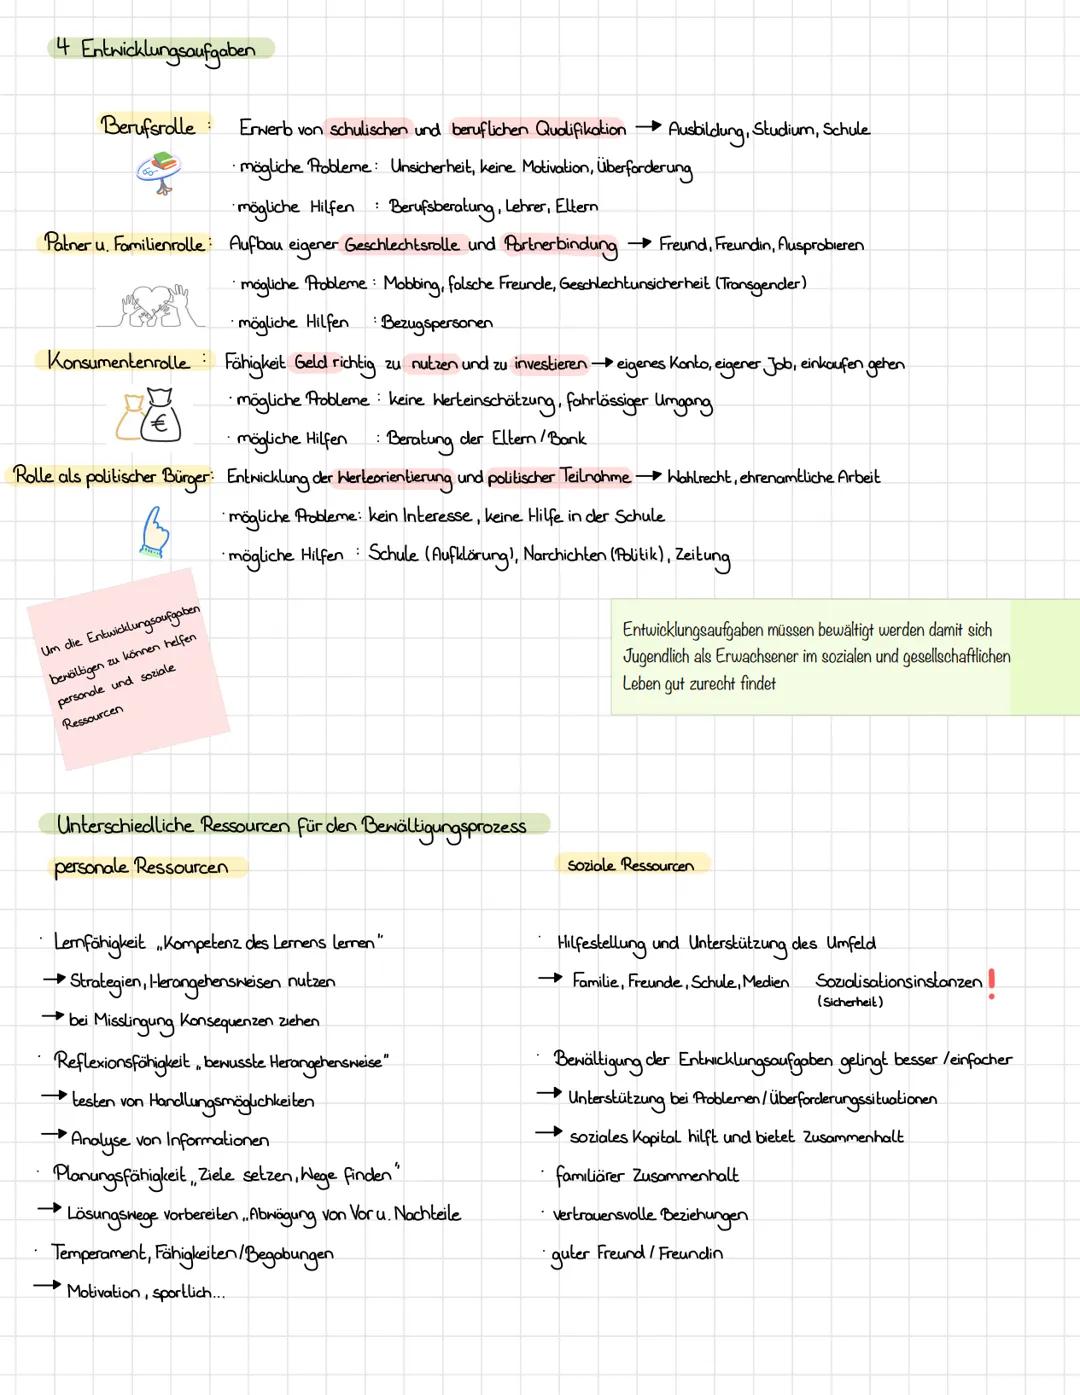 4 Entwicklungsaufgaben
Berufsrolle : Erwerb von schulischen und beruflichen Qualifikation → Ausbildung, Studium, Schule
· mögliche Probleme : Unsicherheit, keine Motivation, Überforderung
· mögliche Hilfen : Berufsberatung, Lehrer, Eltern
Patner u. Familienrolle : Aufbau eigener Geschlechtsrolle und Partnerbindung → Freund, Freundin, Ausprobieren
· mögliche Probleme : Mobbing, falsche Freunde, Geschlechtunsicherheit (Transgender)
· mögliche Hilfen : Bezugspersonen
Konsumentenrolle : Fähigkeit Geld richtig zu nutzen und zu investieren → eigenes Konto, eigener Job, einkaufen gehen
· mögliche Probleme : keine Werteinschätzung, fahrlössiger Umgang
· mögliche Hilfen : Beratung der Eltern / Bank
€
Rolle als politischer Bürger: Entwicklung der Werteorientierung und politischer Teilnahme → Wahlrecht, ehrenamtliche Arbeit
· mögliche Probleme: kein Interesse, keine Hilfe in der Schule
· mögliche Hilfen : Schule (Aufklärung), Narchichten (Politik), Zeitung
Um die Entwicklungsaufgaben
bewältigen zu können helfen
personale und soziale
Ressourcen
Entwicklungsaufgaben müssen bewältigt werden damit sich
Jugendlich als Erwachsener im sozialen und gesellschaftlichen
Leben gut zurecht findet
Unterschiedliche Ressourcen für den Bewältigungsprozess
personale Ressourcen
· Lernfähigkeit „Kompetenz des Lernens lernen"
→ Strategien, Herangehensweisen nutzen
→ bei Misslingung Konsequenzen ziehen
· Reflexionsfähigkeit „bewusste Herangehensweise"
→ testen von Handlungsmöglichkeiten
→ Analyse von Informationen
· Planungsfähigkeit „Ziele setzen, Wege finden"
→ Lösungswege vorbereiten „Abwägung von Vor u. Nachteile
· Temperament, Fähigkeiten/Begabungen
→ Motivation, sportlich...
soziale Ressourcen
· Hilfestellung und Unterstützung des Umfeld
→ Familie, Freunde, Schule, Medien Sozialisationsinstanzen !
(Sicherheit)
· Bewältigung der Entwicklungsaufgaben gelingt besser / einfacher
→ Unterstützung bei Problemen / Überforderungssituationen
→ soziales Kapital hilft und bietet Zusammenhalt
· familiärer Zusammenhalt
· vertrauensvolle Beziehungen
· guter Freund / Freundin